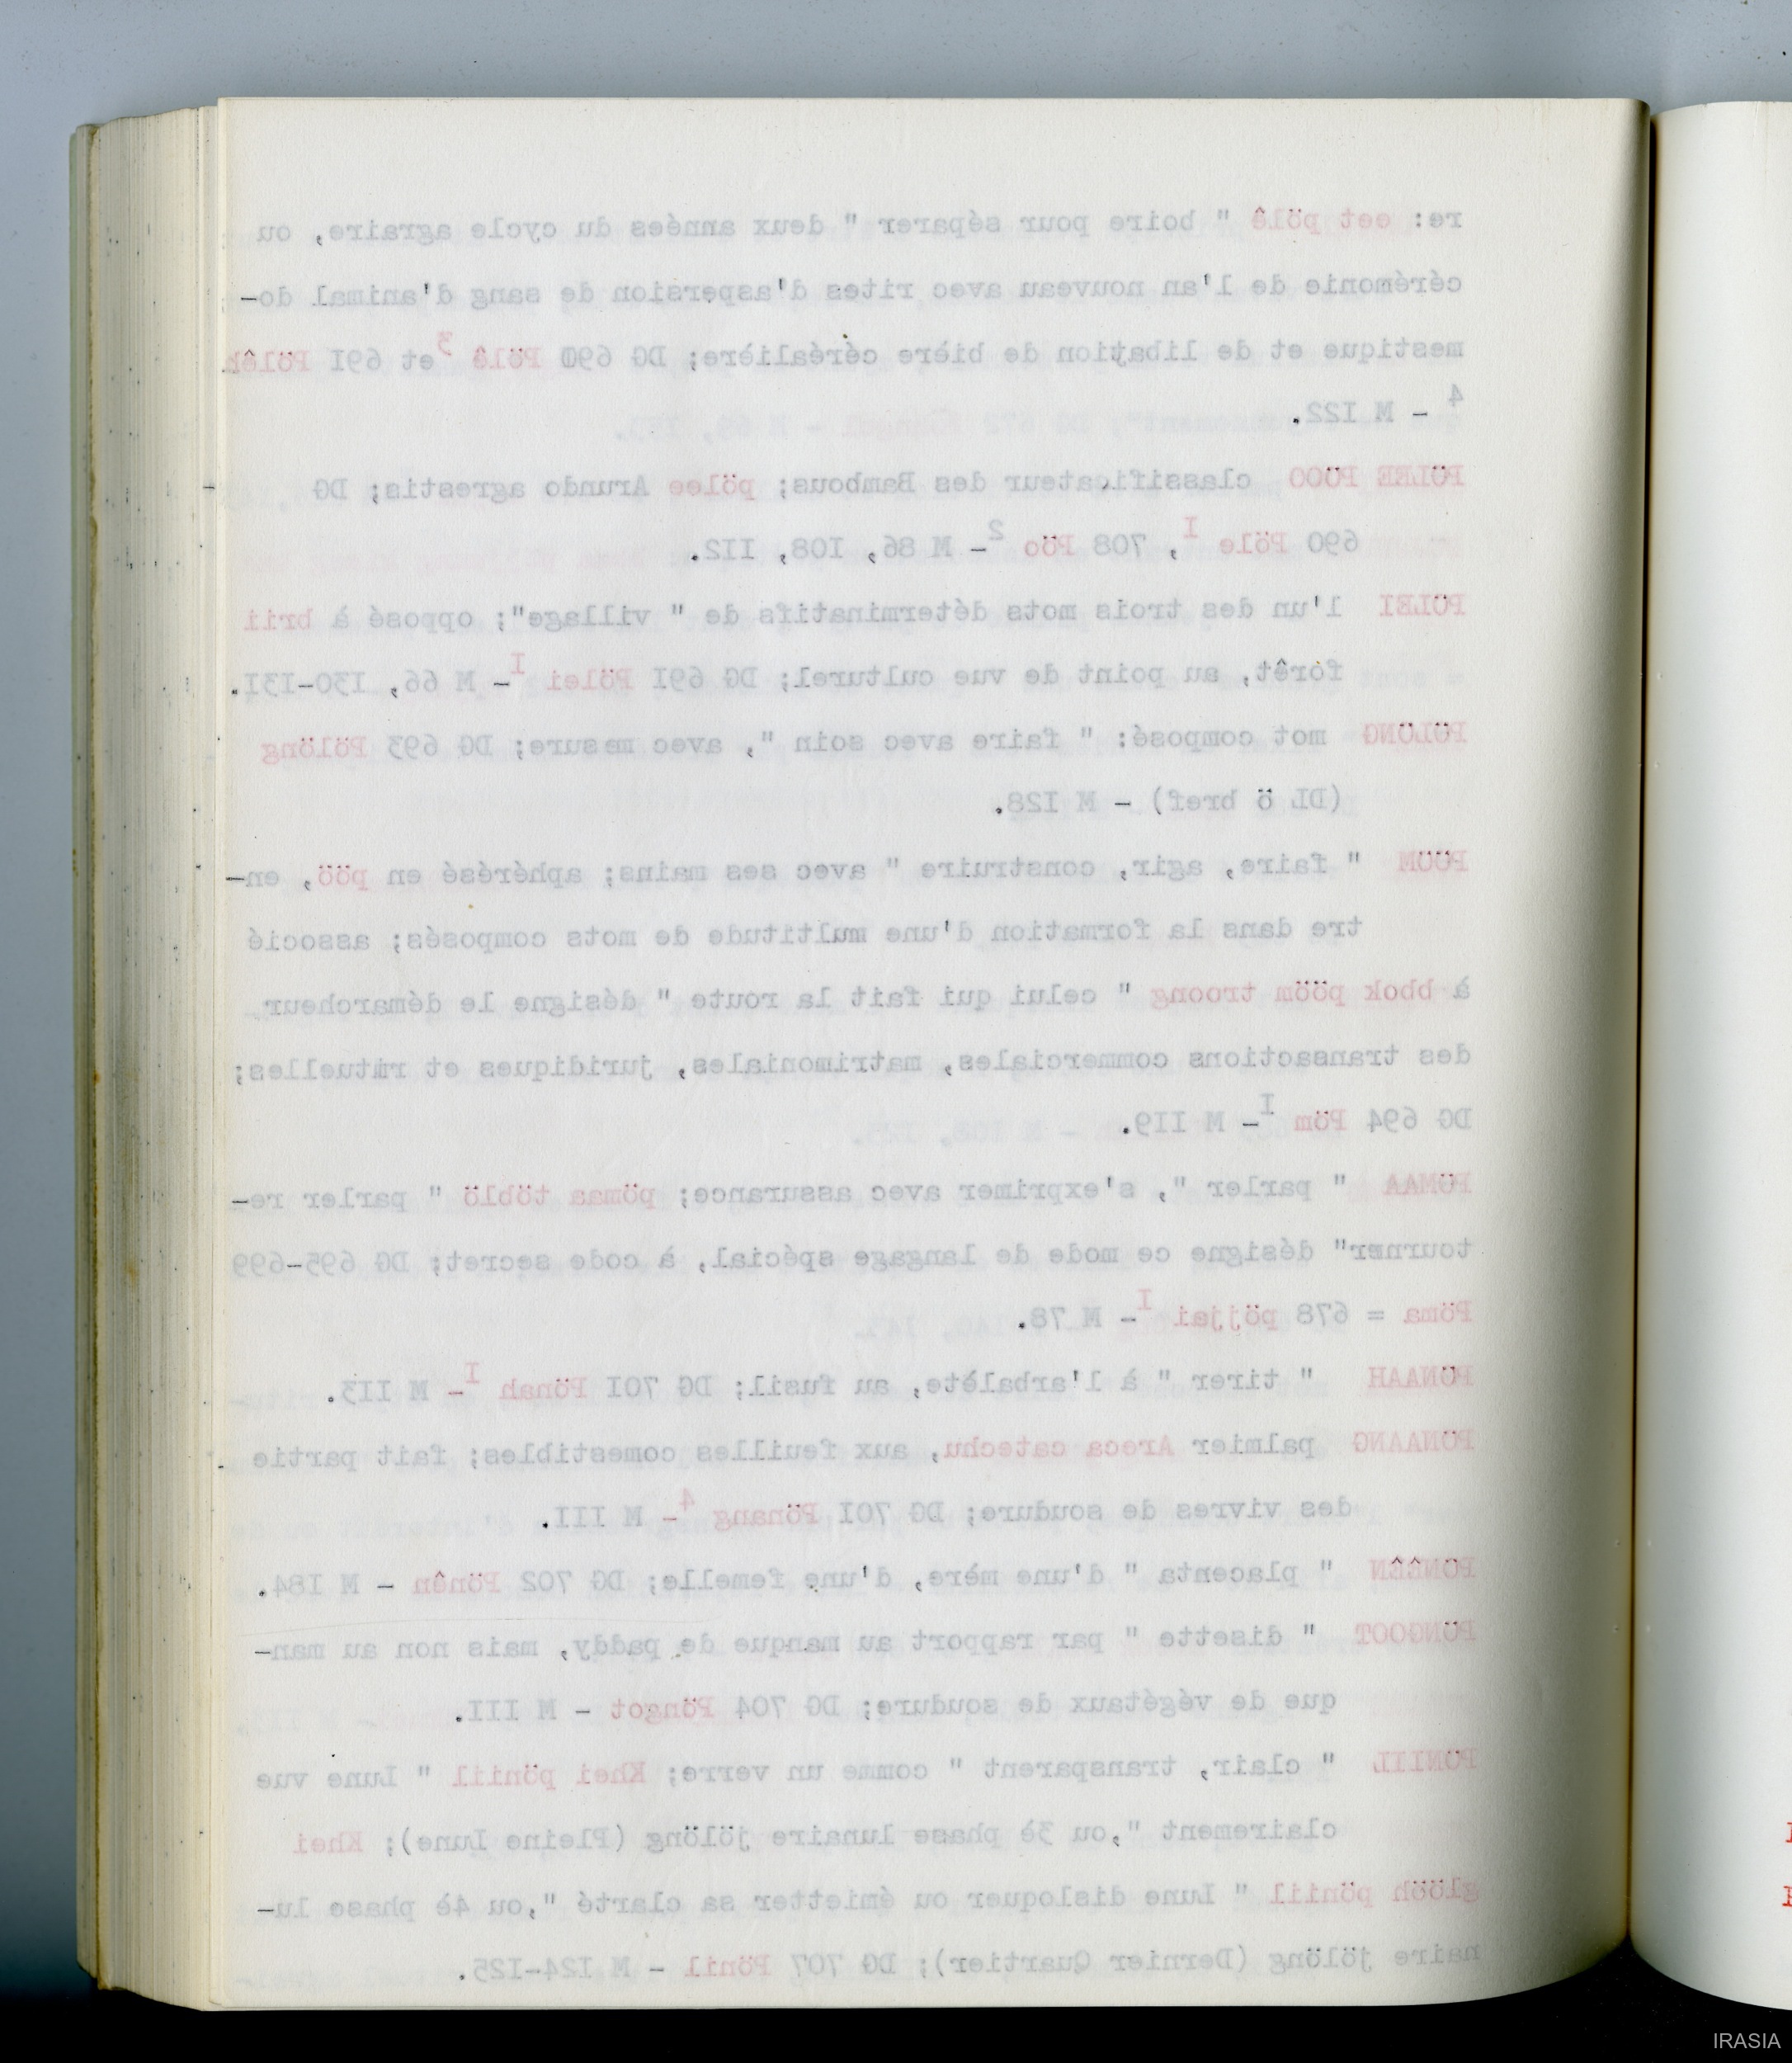 re: eet pölê " boire pour séparer " deux années du cycle agraire, ou
cérémonie de l'an nouveau avec rites d'aspersion de sang d'animal do-
mestique et de libation de bière céréalière; DG 690 Pölê 3 et 69I Pölêh
4 - M I22.
PÖLEE PÖOO classificateur des Bambous; pölee Arundo agrestis; DG
690 Pöle I, 708 Pöo 2- M 86, I08, II2.
PÖLEI l'un des trois mots déterminatifs de " village"; opposé à brii
forêt, au point de vue culturel; DG 69I Pölei I- M 66, I30-I3I.
PÖLÖNG mot composé: " faire avec soin ", avec mesure; DG 693 Pölöng
(DL ö bref) - M I28.
PÖÖM " faire, agir, construire " avec ses mains; aphérésé en pöö, en-
tre dans la formation d'une multitude de mots composés; associé
à bbok pööm troong " celui qui fait la route " désigne le démarcheur
des transactions commerciales, matrimoniales, juridiques et rituelles;
DG 694 Pöm I- M II9.
PÖMAA " parler ", s'exprimer avec assurance; pömaa töblö " parler re-
tourner" désigne ce mode de langage spécial, à code secret; DG 695-699
Pöma = 678 pöjjai I- M 78.
PÖNAAH " tirer " à l'arbalète, au fusil; DG 70I Pönah I- M II3.
PÖNAANG palmier Areca catechu, aux feuilles comestibles; fait partie
des vivres de soudure; DG 70I Pönang 4- M III.
PÖNÊÊN " placenta " d'une mère, d'une femelle; DG 702 Pönên - M I84.
PÖNGOOT " disette " par rapport au manque de paddy, mais non au man-
que de végétaux de soudure; DG 704 Pöngot - M III.
PÖNIIL " clair, transparent " comme un verre; Khei pöniil " Lune vue
clairement ",ou 3è phase lunaire jölöng (Pleine Lune); Khei
glööh pöniil " Lune disloquer ou émietter sa clarté ",ou 4è phase lu-
naire jölöng (Dernier Quartier); DG 707 Pönil - M I24-I25.
IRASIA